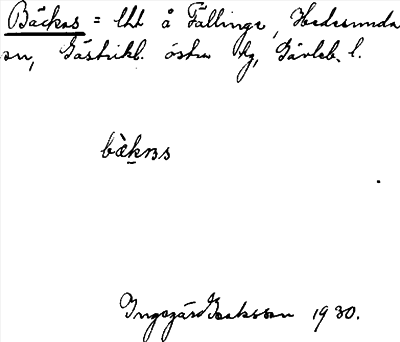 Bäckas = lht å Fallinge, Hedesunda
sn, Gästrikl. östra tg, Gävleb. l.
bæ̀kɴs
Ingegärd Isaksson 1930.